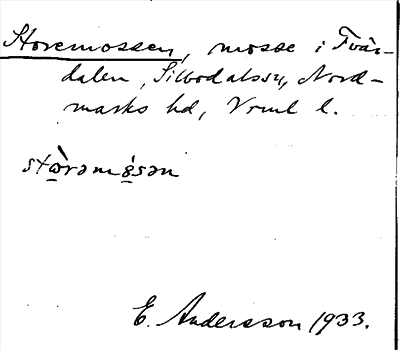 Storemossen, mosse i Tvär-
dalen, Silbodalssn, Nord-
marks hd, Vrml l.
stòrəmósən
E. Andersson 1933.